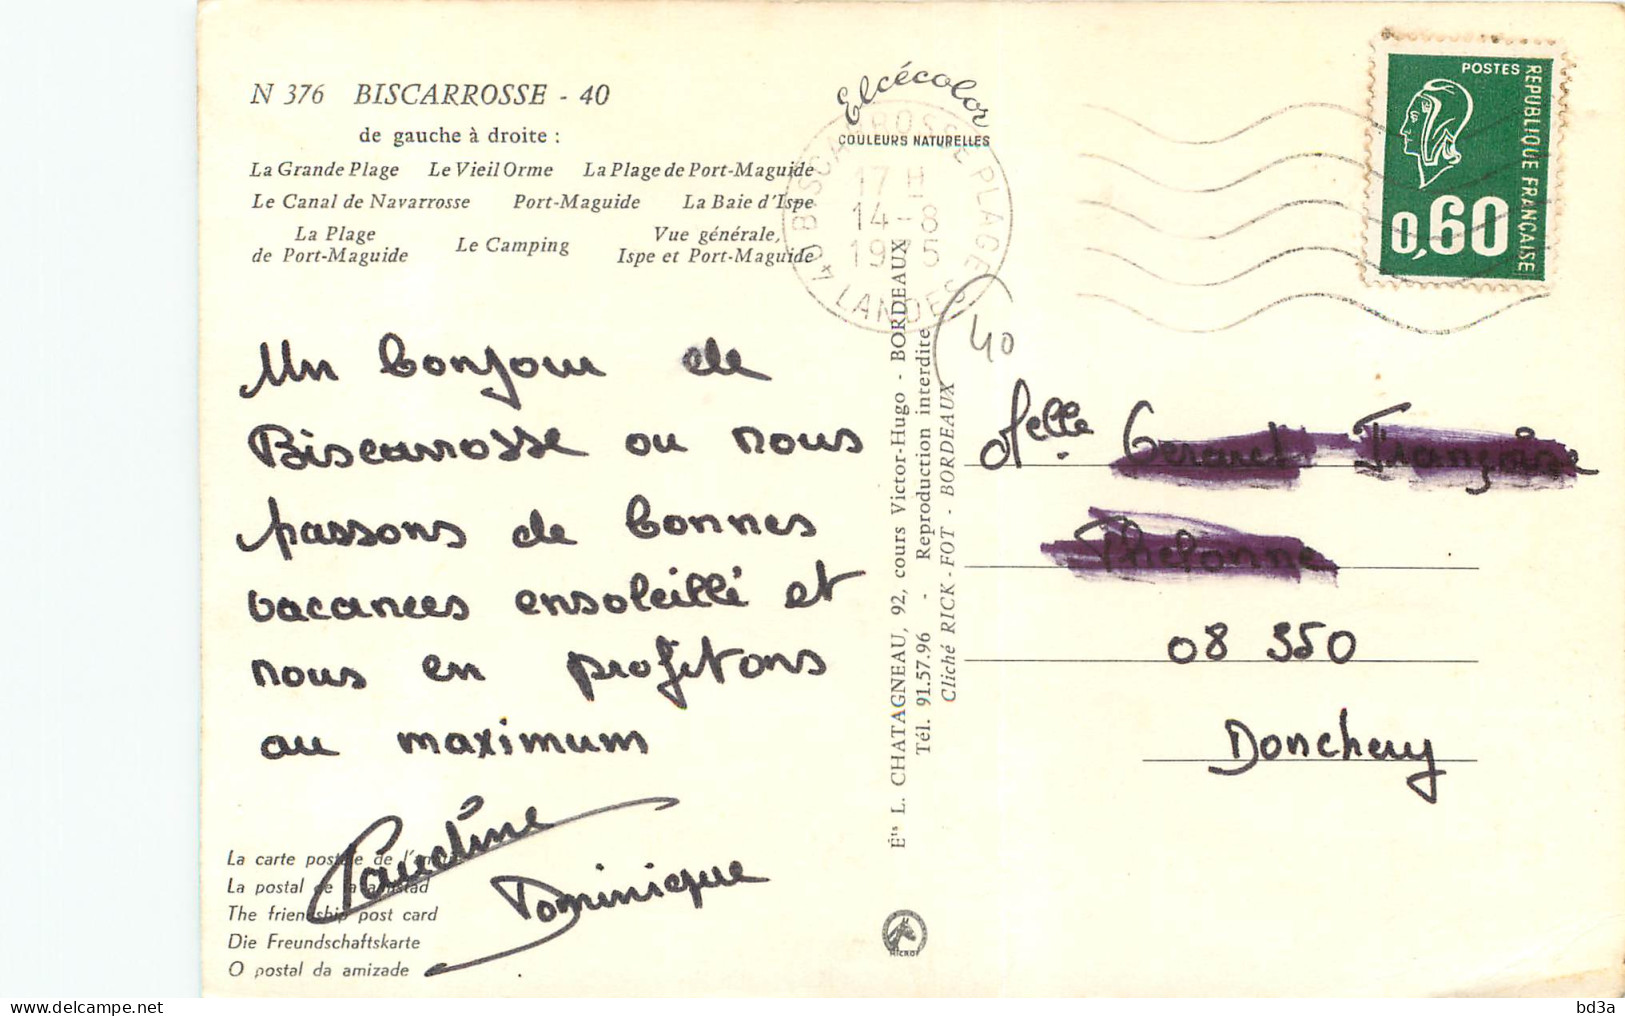 N 376 BISCARROSSE - 40
de gauche à droite :
La Grande Plage Le Vieil Orme La Plage de Port-Maguide
Le Canal de Navarrosse Port-Maguide La Baie d'Ispe
La Plage de Port-Maguide Le Camping Vue générale, Ispe et Port-Maguide
Elcécolor
COULEURS NATURELLES
40 BISCARROSSE PLAGE
17 H
14-8
1975
LANDES
POSTES
REPUBLIQUE FRANÇAISE
0,60
40
Un bonjour de
Biscarrosse ou nous
passons de bonnes
vacances ensoleillé et
nous en profitons
au maximum
Dominique
La carte postale de l'amitié
La postal de la amistad
The friendship post card
Die Freundschaftskarte
O postal da amizade
Éts L. CHATAGNEAU, 92, cours Victor-Hugo - BORDEAUX
Tél. 91.57.96 - Reproduction interdite
Cliché RICK - FOT - BORDEAUX
Melle Gerard Françoise
Thelonne
08 350
Donchery
MICRO
bd3a